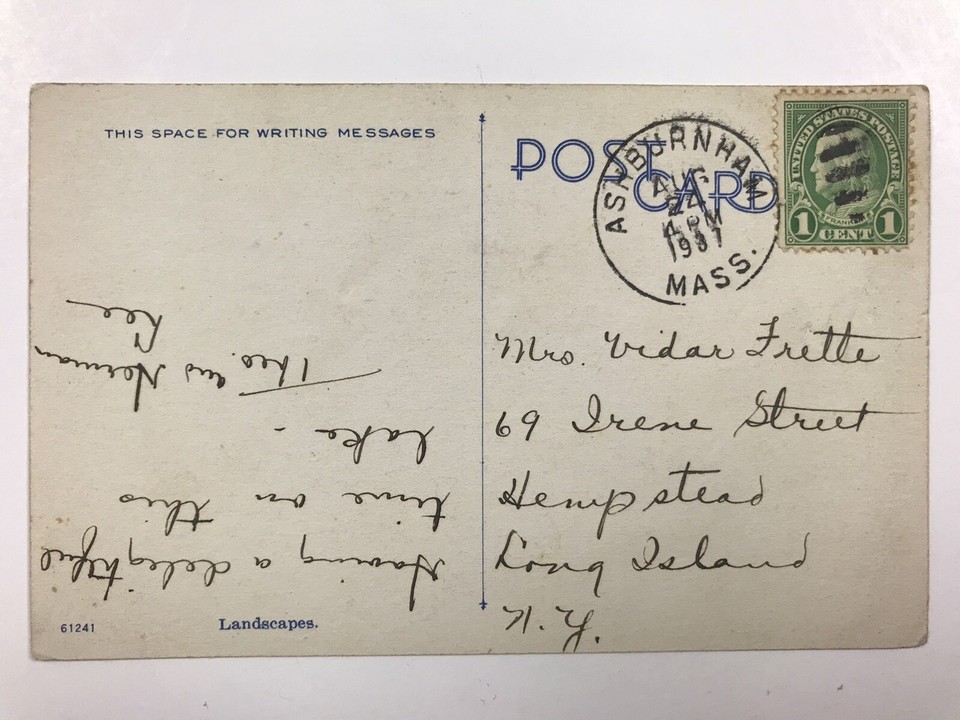 THIS SPACE FOR WRITING MESSAGES
POST CARD
ASHBURNHAM
AUG
24
4 PM
1937
MASS.
UNITED STATES POSTAGE
FRANKLIN
1 CENT 1
Having a delightful
time on this
lake -
Theo. and Norman
Lee
Mrs. Vidar Frette
69 Irene Street
Hempstead
Long Island
N.Y.
61241
Landscapes.